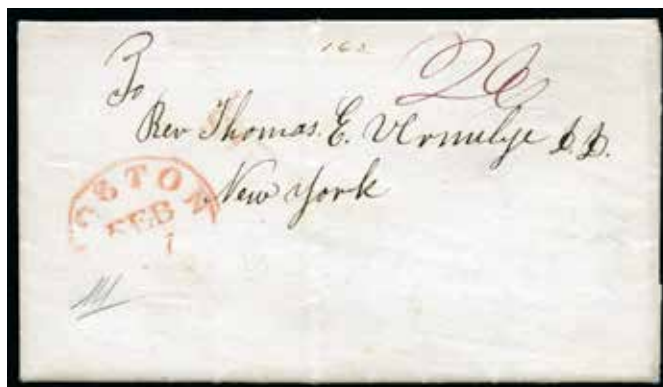 To
Rev Thomas. E. Vermilye D.D.
New York
BOSTON
FEB
7